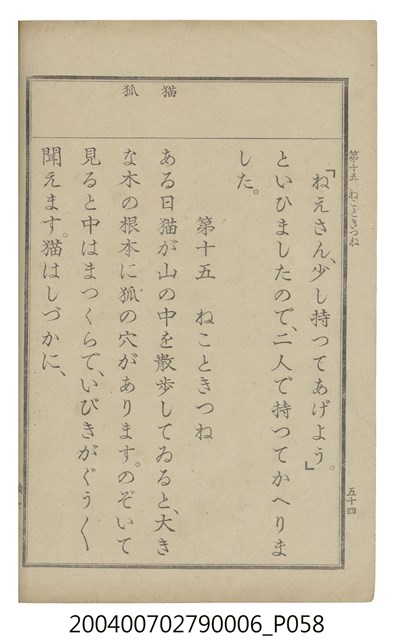 第十五 ねこときつね
五十四
猫
狐
「ねえさん、少し持つてあげよう。」
といひましたので、二人で持つてかへりま
した。
第十五 ねこときつね
ある日猫が山の中を散歩してゐると、大き
な木の根本に狐の穴があります。のぞいて
見ると中はまつくらで、いびきがぐう〱
聞えます。猫はしづかに、
200400702790006_P058